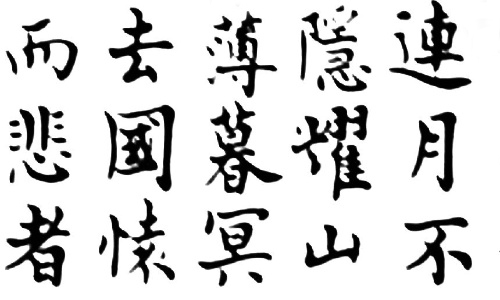 連月不
隱耀山
薄暮冥
去國懷
而悲者